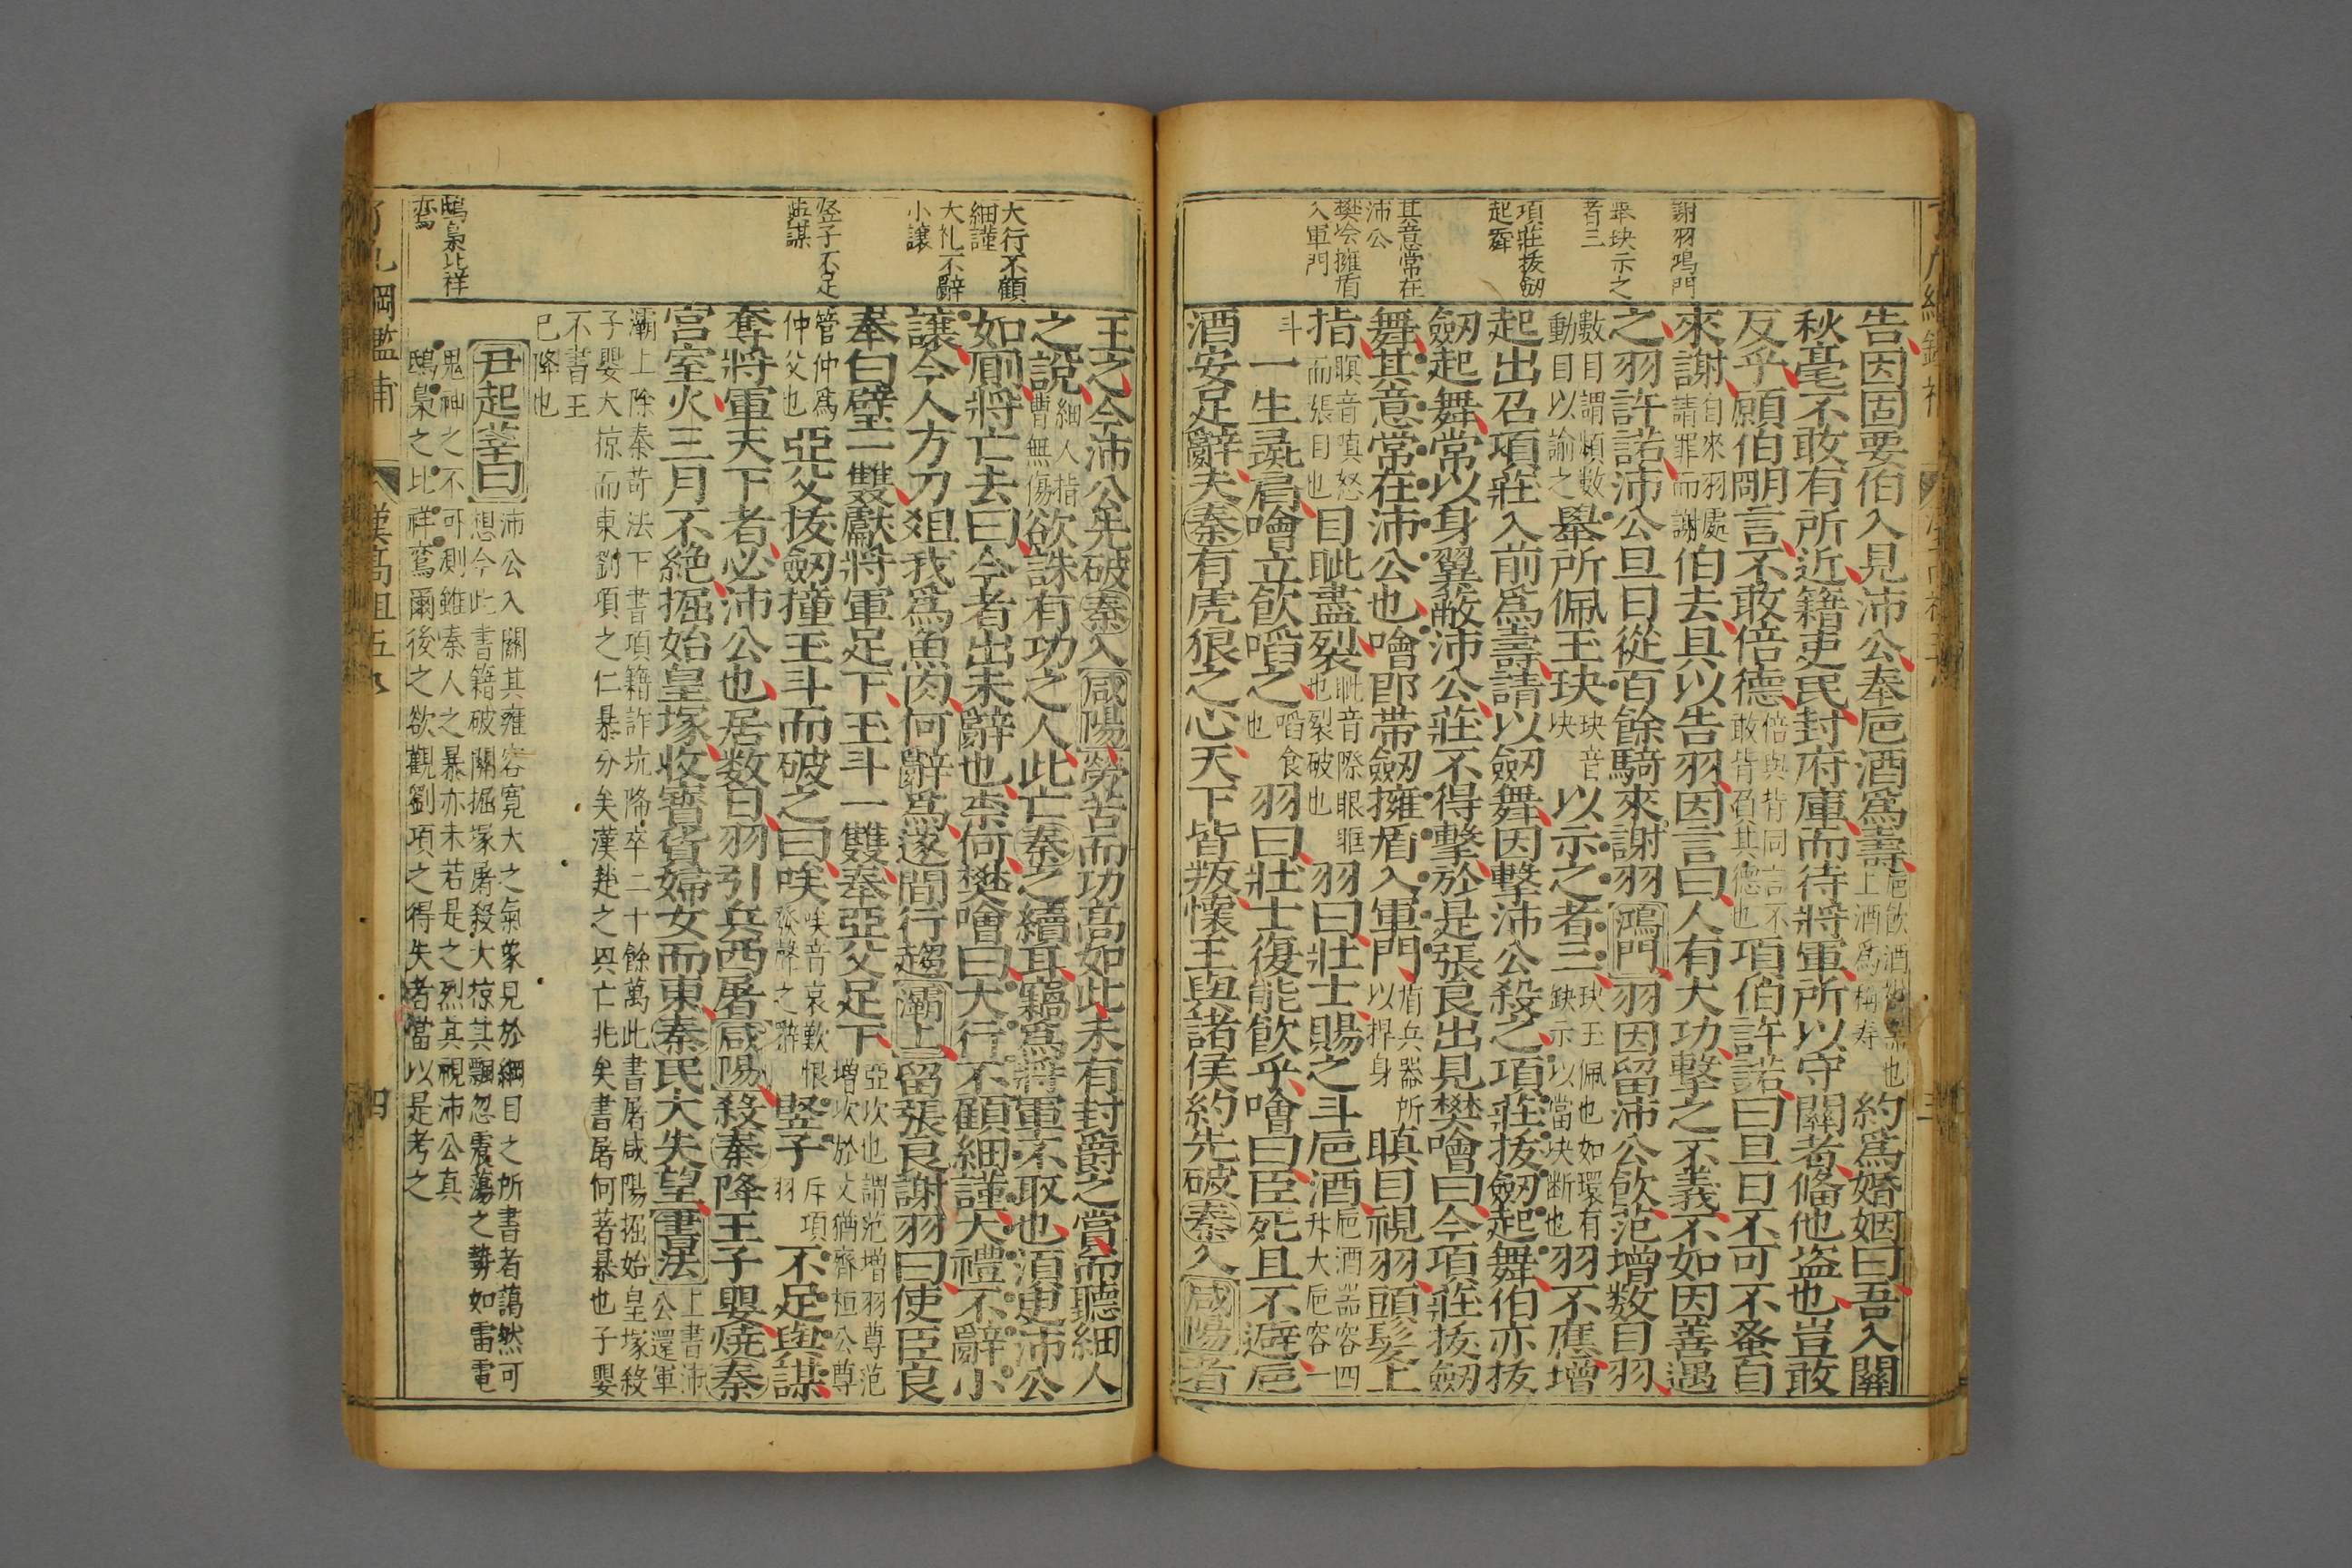 謝羽鴻門
舉玦示之
者三
項莊拔劒
起舞
其意常在
沛公
樊噲擁盾
入軍門
告因固要伯入見沛公奉卮酒爲壽
上酒爲稱寿
約爲婚姻曰吾入關
秋毫不敢有所近籍吏民封府庫而待將軍所以守關者俻他盗也豈敢
反乎願伯明言不敢倍德
倍與背同言不
敢背負其德也
項伯許諾曰旦日不可不蚤自
來謝
自來羽處
請罪而謝
伯去具以告羽因言曰人有大功擊之不義不如因善遇
之羽許諾沛公旦日從百餘騎來謝羽鴻門羽因留沛公飲范增数目羽
數目謂頻數
動目以諭之
舉所佩玉玦
玦音
决
以示之者三
玦玉佩也如環有
缺示以當决断也
羽不應增
起出召項莊入前爲壽請以劒舞因擊沛公殺之項莊拔劒起舞伯亦拔
劒起舞常以身翼蔽沛公莊不得擊於是張良出見樊噲曰今項莊拔劒
舞其意常在沛公也噲即帶劒擁盾入軍門
盾兵器所
以捍身
瞋目視羽頭髪上
指
瞋音嗔怒
而張目也
目眦盡裂
眦音際眼眶
也裂破也
羽曰壯士賜之斗卮酒
卮酒器容四
升大卮容一
斗
一生彘肩噲立飲啗之
啗食
也
羽曰壯士復能飲乎噲曰臣死且不避卮
酒安足辭夫秦有虎狼之心天下皆叛懷王與諸侯約先破秦入咸陽者
大行不顧
細謹
大礼不辭
小讓
竖子不足
與謀
鴟梟比祥
鸞
王之今沛公先破秦入咸陽勞苦而功高如此未有封爵之賞而聽細人
之說
細人指
曹無傷
欲誅有功之人此亡秦之續耳竊爲將軍不取也須臾沛公
如厠將亡去曰今者出未辭也柰何樊噲曰大行不顧細謹大禮不辭小
讓今人方刀爼我爲魚肉何辭爲遂間行趨灞上留張良謝羽曰使臣良
奉白璧一雙獻將軍足下玉斗一雙奉亞父足下
亞次也謂范增羽尊范
增次於父猶齊桓公尊
管仲爲
仲父也
亞父拔劒撞玉斗而破之曰唉
唉音哀歎恨
發聲之辭
竪子
斥項
羽
不足與謀
奪將軍天下者必沛公也居数日羽引兵西屠咸陽殺秦降王子嬰燒秦
宮室火三月不絶掘始皇塚收寳貨婦女而東秦民大失望書法
上書沛
公還軍
灞上除秦苛法下書項籍詐坑降卒二十餘萬此書屠咸陽掘始皇塚殺
子嬰大掠而東劉項之仁暴分矣漢楚之興亡兆矣書屠何著暴也子嬰
不書王
已降也
尹起莘曰
沛公入關其雍容寛大之氣象見於綱目之所書者藹然可
想今此書籍破關掘塚屠殺大掠其飄忽震蕩之勢如雷電
鬼神之不可測雖秦人之暴亦未若是之烈其視沛公真
鴟梟之比祥鸞爾後之欲觀劉項之得失者當以是考之
漢高祖五
四